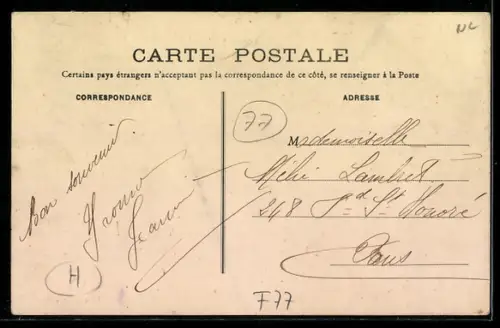 NL
CARTE POSTALE
Certains pays étrangers n'acceptant pas la correspondance de ce côté, se renseigner à la Poste
CORRESPONDANCE
ADRESSE
77
Bon souvenir.
Mademoiselle
Lambert
248 St Honoré
Paris
H
F77